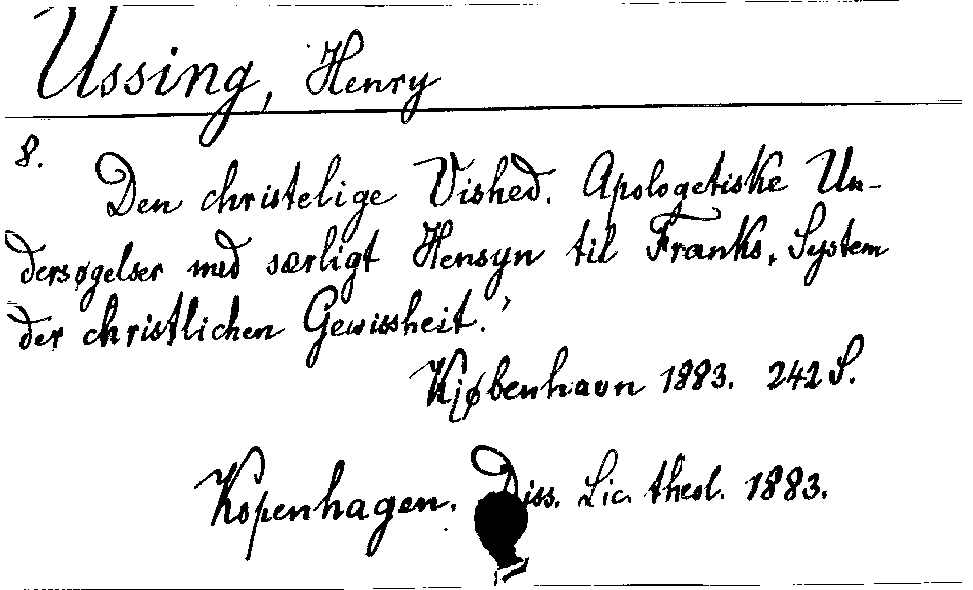 Ussing, Henry
8.
Den christelige Vished. Apologetiske Un-
dersøgelser med særligt Hensyn til Franks, System
der christlichen Gewissheit.'
Kjøbenhavn 1883. 242 S.
Kopenhagen. Diss. Lic. theol. 1883.